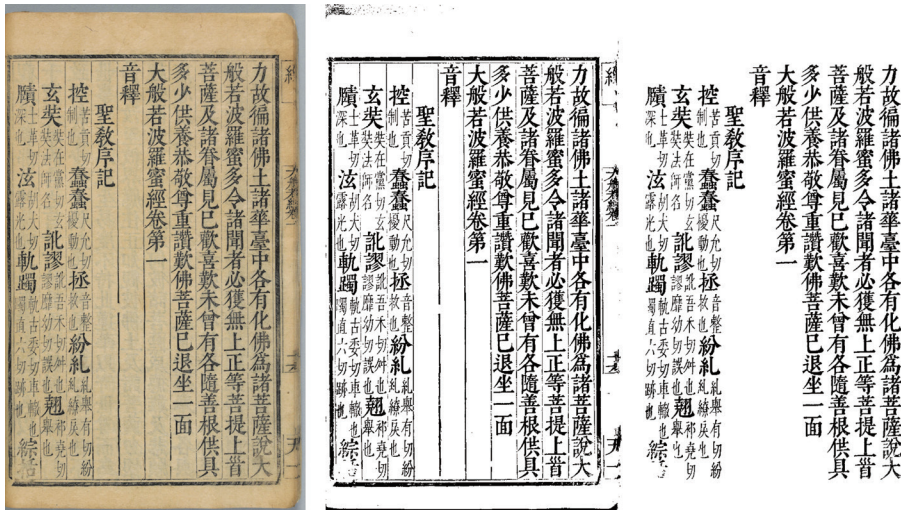 力故徧諸佛土諸華臺中各有化佛爲諸菩薩說大
般若波羅蜜多令諸聞者必獲無上正等菩提上首
菩薩及諸眷屬見已歡喜歎未曾有各隨善根供具
多少供養恭敬尊重讚歎佛菩薩已退坐一面
大般若波羅蜜經卷第一
音釋
聖教序記
控苦貢切制也 蠢蠢尺允切擾動也 拯音整救也 紛糺糺舉有切紛糺繚戾也
玄奘奘在黨切玄奘法師名 訛謬訛吾禾切舛也謬靡幼切誤也 翹祁堯切舉也
賾士革切深也 泫胡犬切露光也 軌躅軌古委切車轍也躅直六切跡也 綜
力故徧諸佛土諸華臺中各有化佛爲諸菩薩說大
般若波羅蜜多令諸聞者必獲無上正等菩提上首
菩薩及諸眷屬見已歡喜歎未曾有各隨善根供具
多少供養恭敬尊重讚歎佛菩薩已退坐一面
大般若波羅蜜經卷第一
音釋
聖教序記
控苦貢切制也 蠢蠢尺允切擾動也 拯音整救也 紛糺糺舉有切紛糺繚戾也
玄奘奘在黨切玄奘法師名 訛謬訛吾禾切舛也謬靡幼切誤也 翹祁堯切舉也
賾士革切深也 泫胡犬切露光也 軌躅軌古委切車轍也躅直六切跡也 綜
力故徧諸佛土諸華臺中各有化佛爲諸菩薩說大
般若波羅蜜多令諸聞者必獲無上正等菩提上首
菩薩及諸眷屬見已歡喜歎未曾有各隨善根供具
多少供養恭敬尊重讚歎佛菩薩已退坐一面
大般若波羅蜜經卷第一
音釋
聖教序記
控苦貢切制也 蠢蠢尺允切擾動也 拯音整救也 紛糺糺舉有切紛糺繚戾也
玄奘奘在黨切玄奘法師名 訛謬訛吾禾切舛也謬靡幼切誤也 翹祁堯切舉也
賾士革切深也 泫胡犬切露光也 軌躅軌古委切車轍也躅直六切跡也 綜